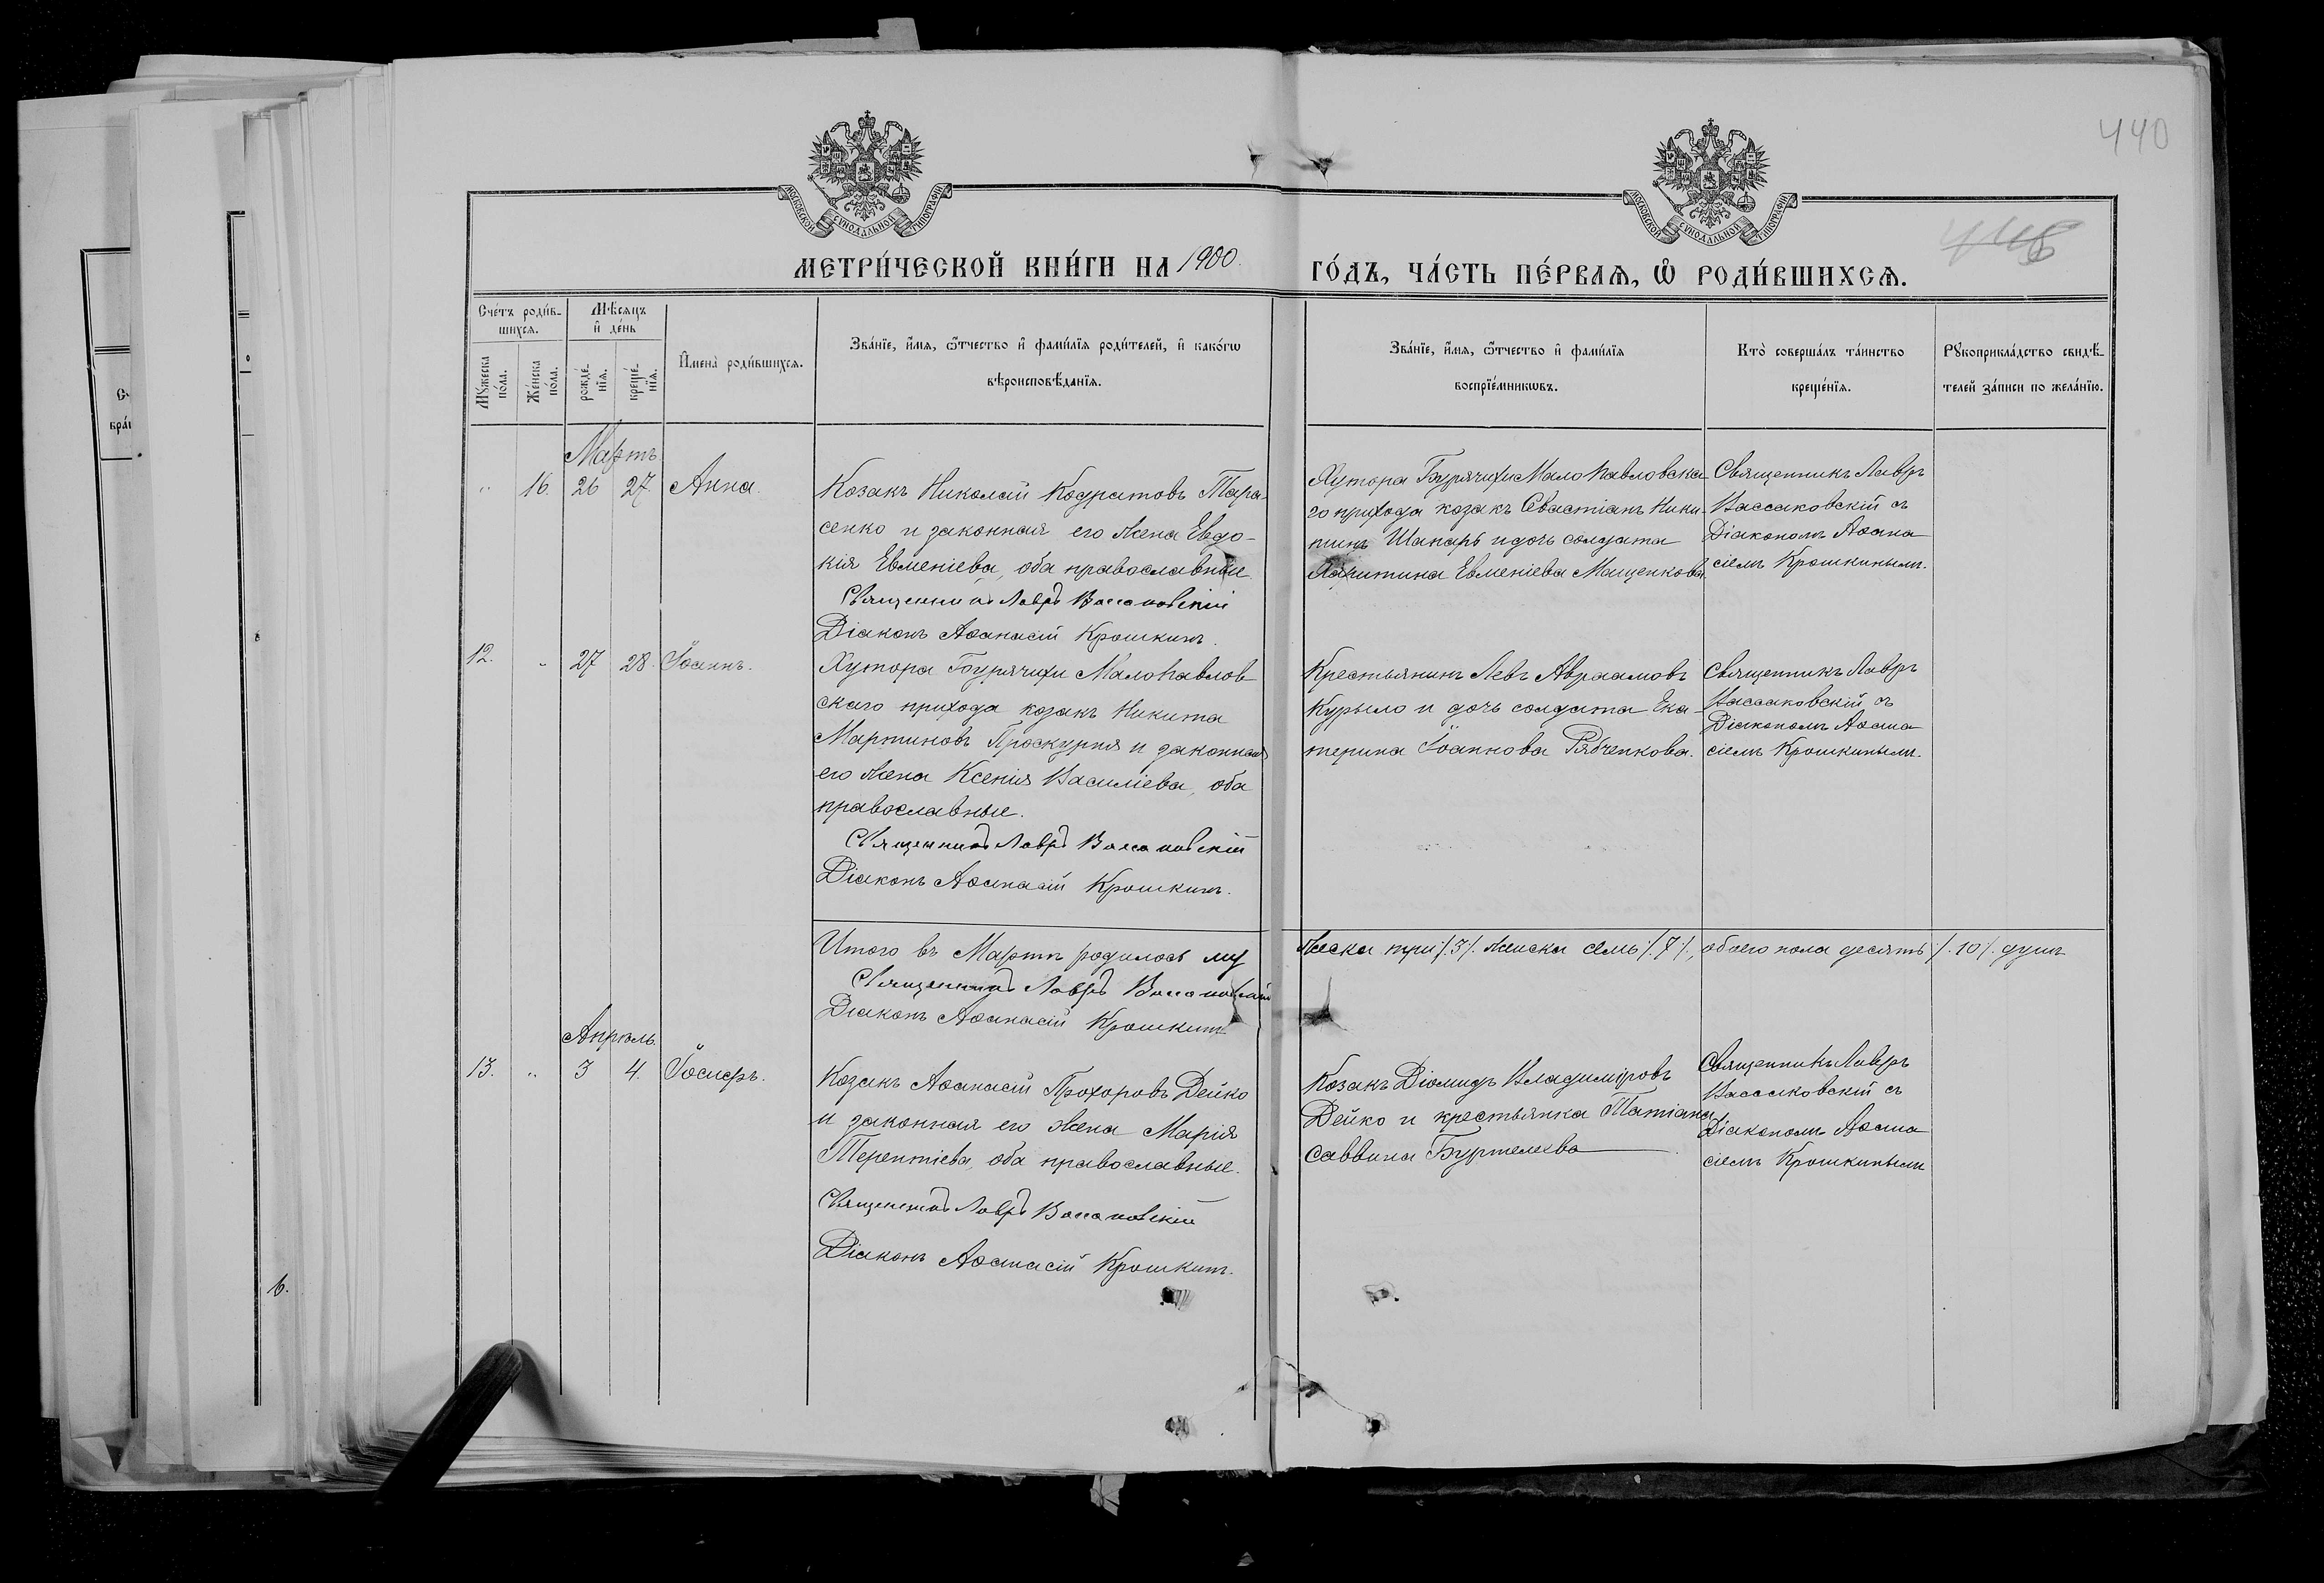 440
МОСКОВСКОЙ СУНОДАЛЬНОЙ ТИПОГРАФІИ
МОСКОВСКОЙ СУНОДАЛЬНОЙ ТИПОГРАФІИ
МЕТРИ́ЧЕСКОЙ КНИ́ГИ НА 1900 ГО́ДЪ, ЧА́СТЬ ПЕ́РВАѦ, Ѡ РОДИ́ВШИХСѦ.
Сче́тъ роди́в-
шихсѧ.
Мꙋ́жеска
по́ла.
Же́нска
по́ла.
Мѣ́сяцъ
и҆ де́нь
рожде́-
нїѧ.
креще́-
нїѧ.
И҆мена̀ роди́вшихсѧ.
Зва́нїе, и҆́мѧ, ѻ҆́тчество и҆ фами́лїѧ роди́телей, и҆ како́гѡ
вѣроисповѣ́данїѧ.
Зва́нїе, и҆́мѧ, ѻ҆́тчество и҆ фами́лїѧ
воспрїе́мникѡвъ.
Кто̀ соверша́лъ та́инство
креще́нїѧ.
Рꙋкоприкла́дство свидѣ́-
телей за́писи по жела́нїю.
Мартъ
" 16. 26 27. Анна.
Козакъ Николай Кодратовъ Тара-
сенко и законная его жена Евдо-
кія Евменіева, оба православные
Священникъ Лавръ Вассаковскій
Діаконъ Аѳанасій Крошкинъ.
Хутора Бурячихи Мало Павловска
го прихода козакъ Севастіанъ Ники-
тинъ Шапарь и дочь солдата
Харитина Евменіева Мащенкова.
Священникъ Лавръ
Вассаковскій съ
Діакономъ Аѳана
сіемъ Крошкинымъ.
12. " 27 28. Іоаннъ.
Хутора Бурячихи Мало Павлов
скаго прихода козакъ Никита
Мартиновъ Проскурня и законная
его жена Ксенія Василіева, оба
православные.
Священникъ Лавръ Вассаковскій
Діаконъ Аѳанасій Крошкинъ.
Крестьянинъ Левъ Авраамовъ
Курыло и дочь солдата Ека-
терина Іоаннова Рябченкова.
Священникъ Лавръ
Вассаковскій съ
Діакономъ Аѳана
сіемъ Крошкинымъ.
Итого въ Мартѣ родилось му жеска три /.3/. женска семь /.7/., обоего пола десять /.10/. душъ
Священникъ Лавръ Вассаковскій
Діаконъ Аѳанасій Крошкинъ
Апрѣль.
13. " 3 4. Іосифъ.
Козакъ Аѳанасій Прохоровъ Дейко
и законная его жена Марія
Терентіева, оба православные.
Священникъ Лавръ Вассаковскій
Діаконъ Аѳанасій Крошкинъ.
Козакъ Діомидъ Владиміровъ
Дейко и крестьянка Татіана
Саввина
Священникъ Лавръ
Вассаковскій съ
Діакономъ Аѳана
сіемъ Крошкинымъ